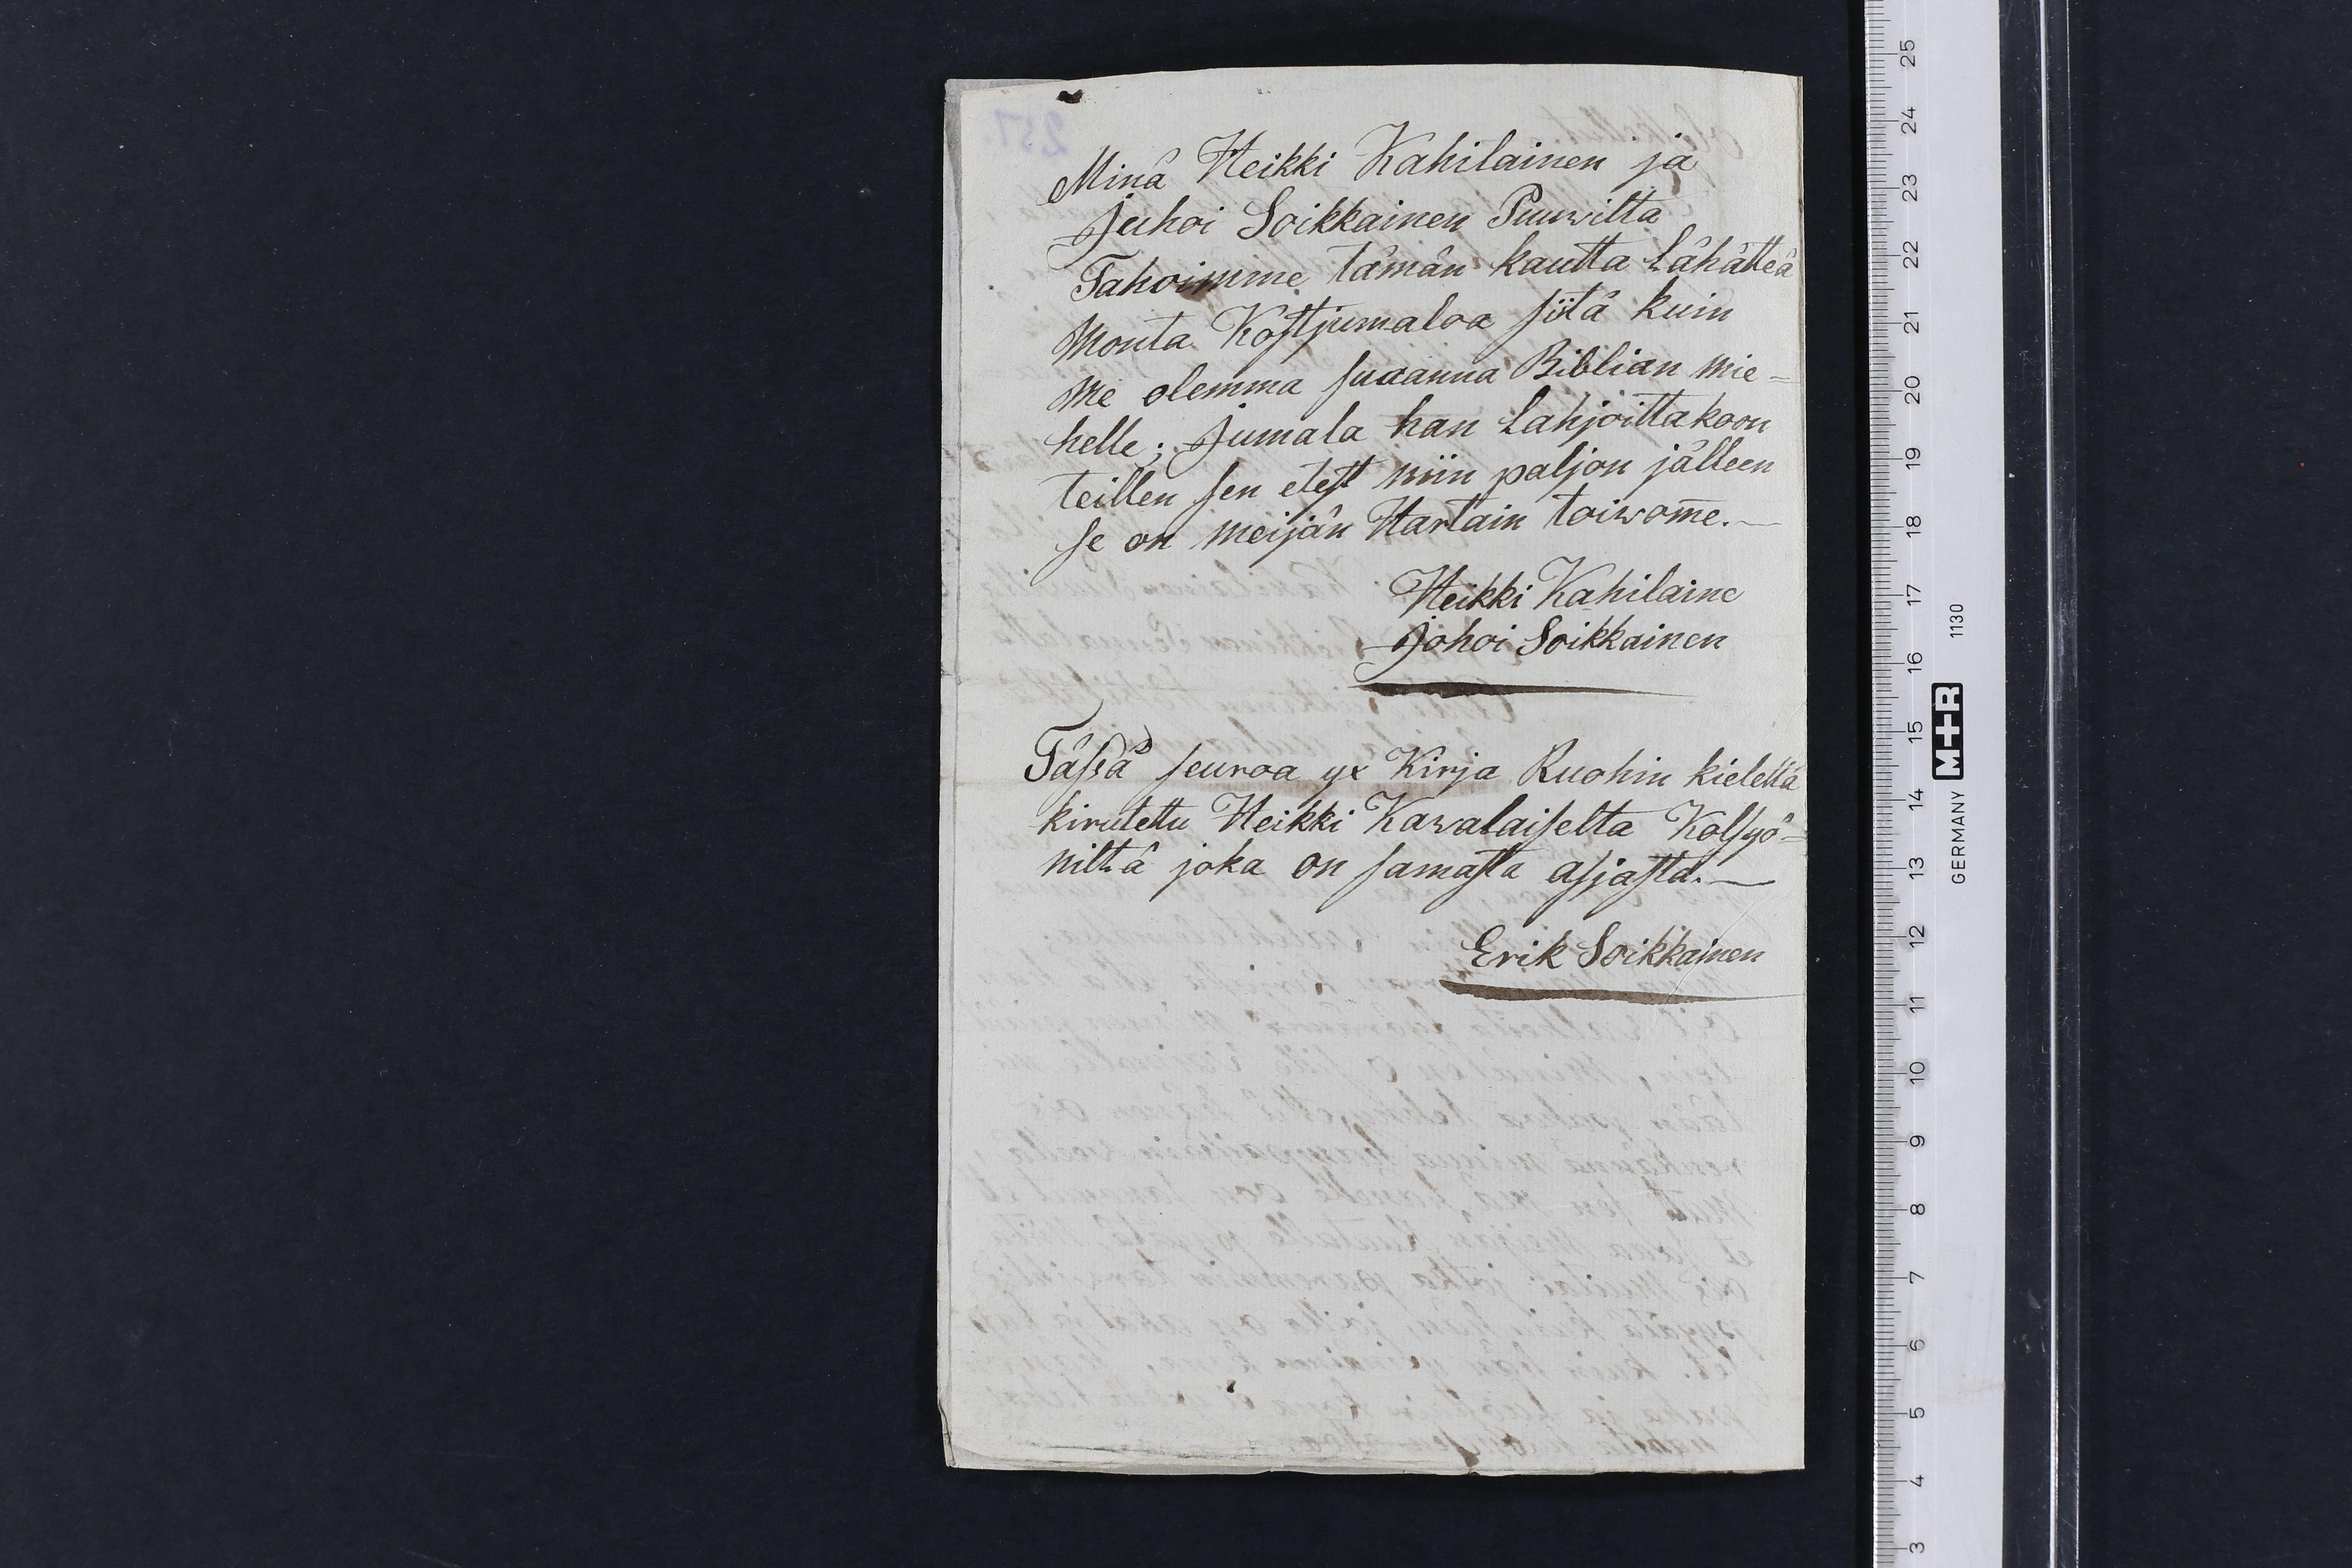 Minä Heikki Kahilainen ja
Juhoi Soikkainen Puuwilta
Tahoimme tämän kautta Lähätteä
Monta Kostjumaloa siitä kuin
Me olemma suaanna Biblian mie=
helle; Jumala han Lahjoittakoon
teillen sen etest niin paljon jälleen
se on meijän Hartain toiwom̅e.—
Heikki Kahilaine
Johoi Soikkainen
Tässä seuroa yx Kirja Ruohin kielellä
kirutettu Heikki Kawalaiselta Kolsyö=
niltä joka on samasta asjasta.—
Erik Soikkainen
25
24
23
22
21
20
19
18
17
16
15
14
13
12
11
10
9
8
7
6
5
4
3
GERMANY M+R 1130